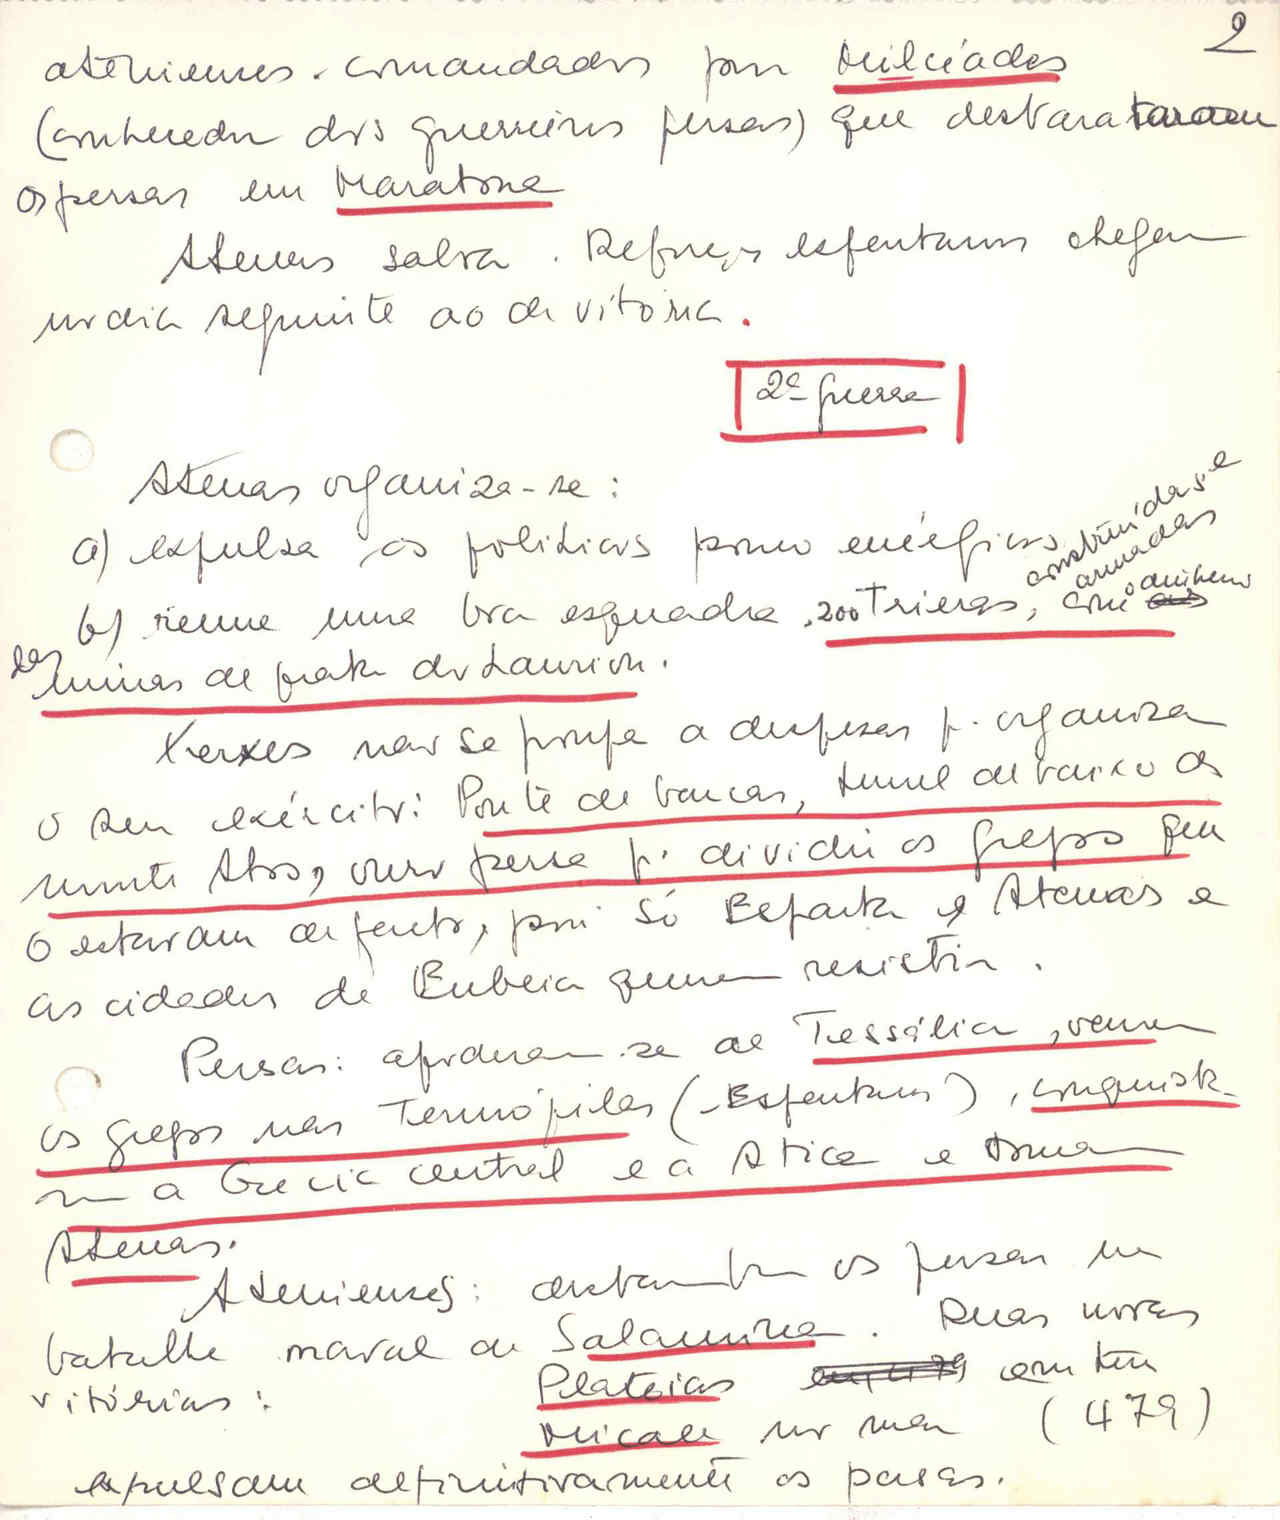 2
atenienses. comandados por Milcíades
(conhecedor dos guerreiros persas) que desbarataram
os persas em Maratona
Atenas salva. Reforços espartanos chegam
no dia seguinte ao da vitória.
2ª guerra
Atenas organiza-se:
a) expulsa os politicos pouco enérgicos
b) reune uma boa esquadra, 200 Trieras, construídas e
armadas com o dinheiro
das minas de prata do Laurion.
Xerxes não se poupa a despesas p. organizar
o seu exército: Ponte de barcas, tunel debaixo do
monte Atos, ouro persa p. dividir os gregos que
o estavam de facto, pois só Esparta e Atenas e
as cidades de Eubeia querem resistir.
Persas: apoderam-se de Tessália, vencem
os gregos nas Termópilas (Espartanos), conquista-
m a Grecia central e a Atica e tomam
Atenas.
Atenienses: derrotam os persas na
batalha naval de Salamina. Duas novas
vitórias:
Plateias em terra
Micale no mar (479)
expulsam definitivamente os persas.